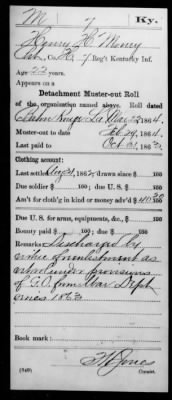 M 7 Ky.
Henry C. Murry
Co. H, 7 Reg't Kentucky Inf.
Age 22 years.
Appears on
Detachment Muster-out Roll
of the organization named above. Roll dated
La. Mar 22 1864.
Muster-out to date Feb 29, 1864.
Last paid to Oct 31, 1863.
Clothing account:
Last settled 186 ; drawn since $ 100
Due soldier $ 100; due U. S. $ 100
Am't for cloth'g in kind or money adv'd $ 40
Due U. S. for arms, equipments, &c., $ 100
Bounty paid $ 100; due $ 100
Remarks: Discharge by
virtue of reenlistment as
under provisions
of G.O. from War Dept
1863
Book mark:
(949) Copyist.